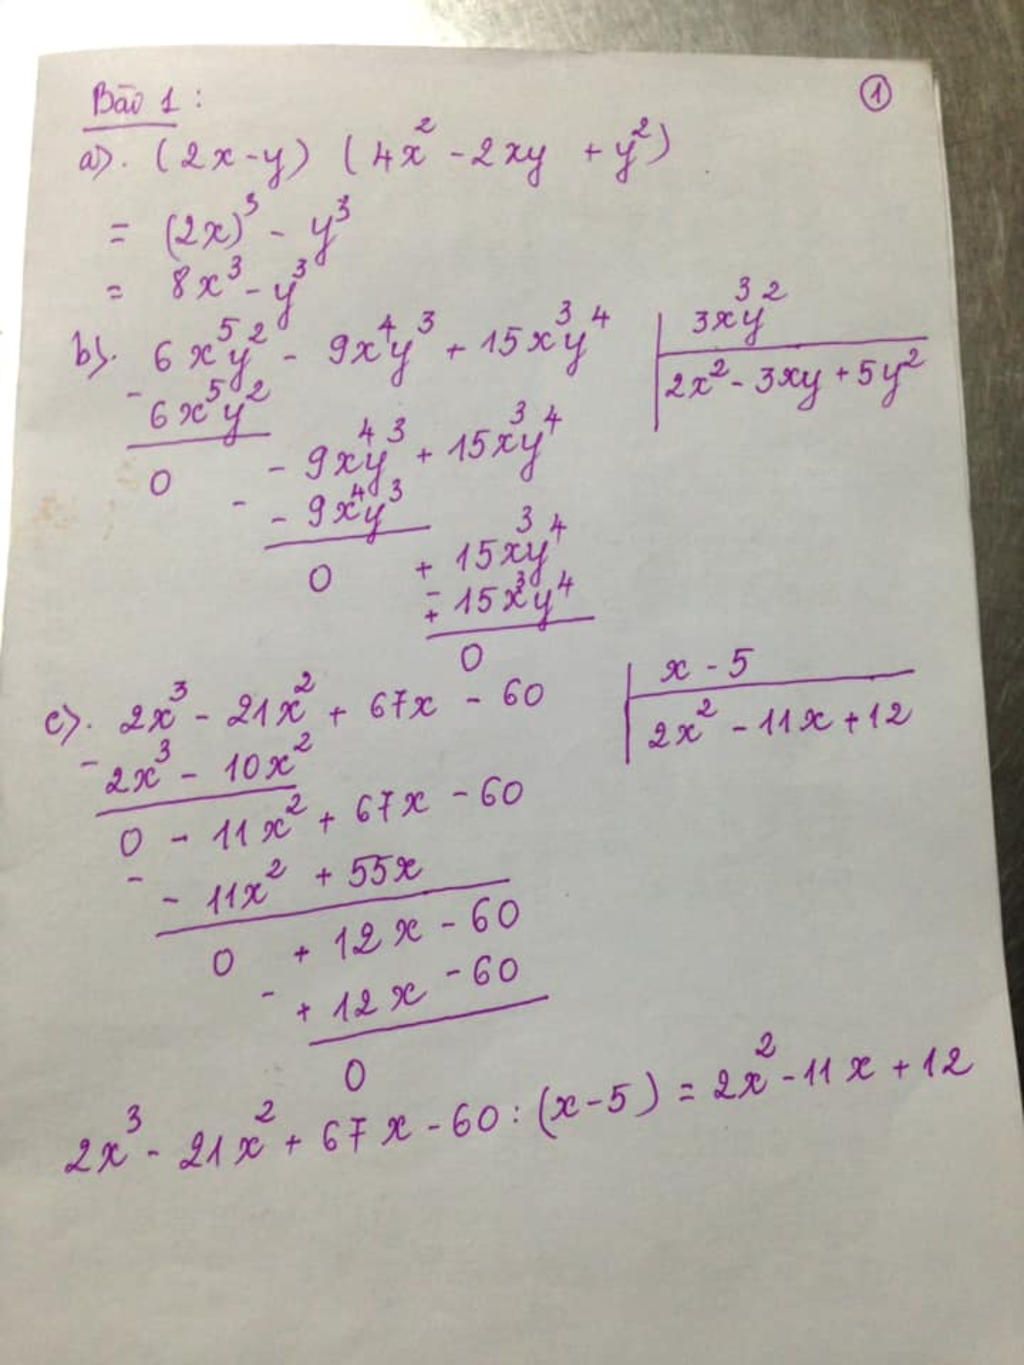 Bài 1 :
①
a). (2x-y) (4x² - 2xy + y²)
= (2x)³ - y³
= 8x³ - y³
b). 6x⁵y² - 9x⁴y³ + 15x³y⁴ | 3x³y²
- 6x⁵y² | 2x² - 3xy + 5y²
0 - 9x⁴y³ + 15x³y⁴
- - 9x⁴y³
0 + 15x³y⁴
- + 15x³y⁴
0
c). 2x³ - 21x² + 67x - 60 | x - 5
- 2x³ - 10x² | 2x² - 11x + 12
0 - 11x² + 67x - 60
- - 11x² + 55x
0 + 12x - 60
- + 12x - 60
0
2x³ - 21x² + 67x - 60 : (x-5) = 2x² - 11x + 12